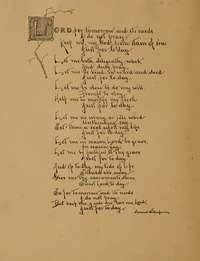 LORD for tomorrow and its needs
I do not pray;
Keep me, my God, from stain of sin
Just for to-day.
Let me both diligently work
And duly pray
Let me be kind in word and deed
Just for to-day.
Let me be slow to do my will
Prompt to obey
Help me to mortify my flesh
Just for to-day.
Let me no wrong or idle word
Unthinking say
Set thou a seal upon my lips
Just for to-day
Let me in season, Lord, be grave,
In season gay,
Let me be faithful to thy grace
Just for to-day.
And if to-day my tide of life
Should ebb away
Give me thy sacraments divine,
Sweet Lord to-day.
So for tomorrow and its needs
I do not pray
But keep me, guide me, love me, Lord
Just for to-day.